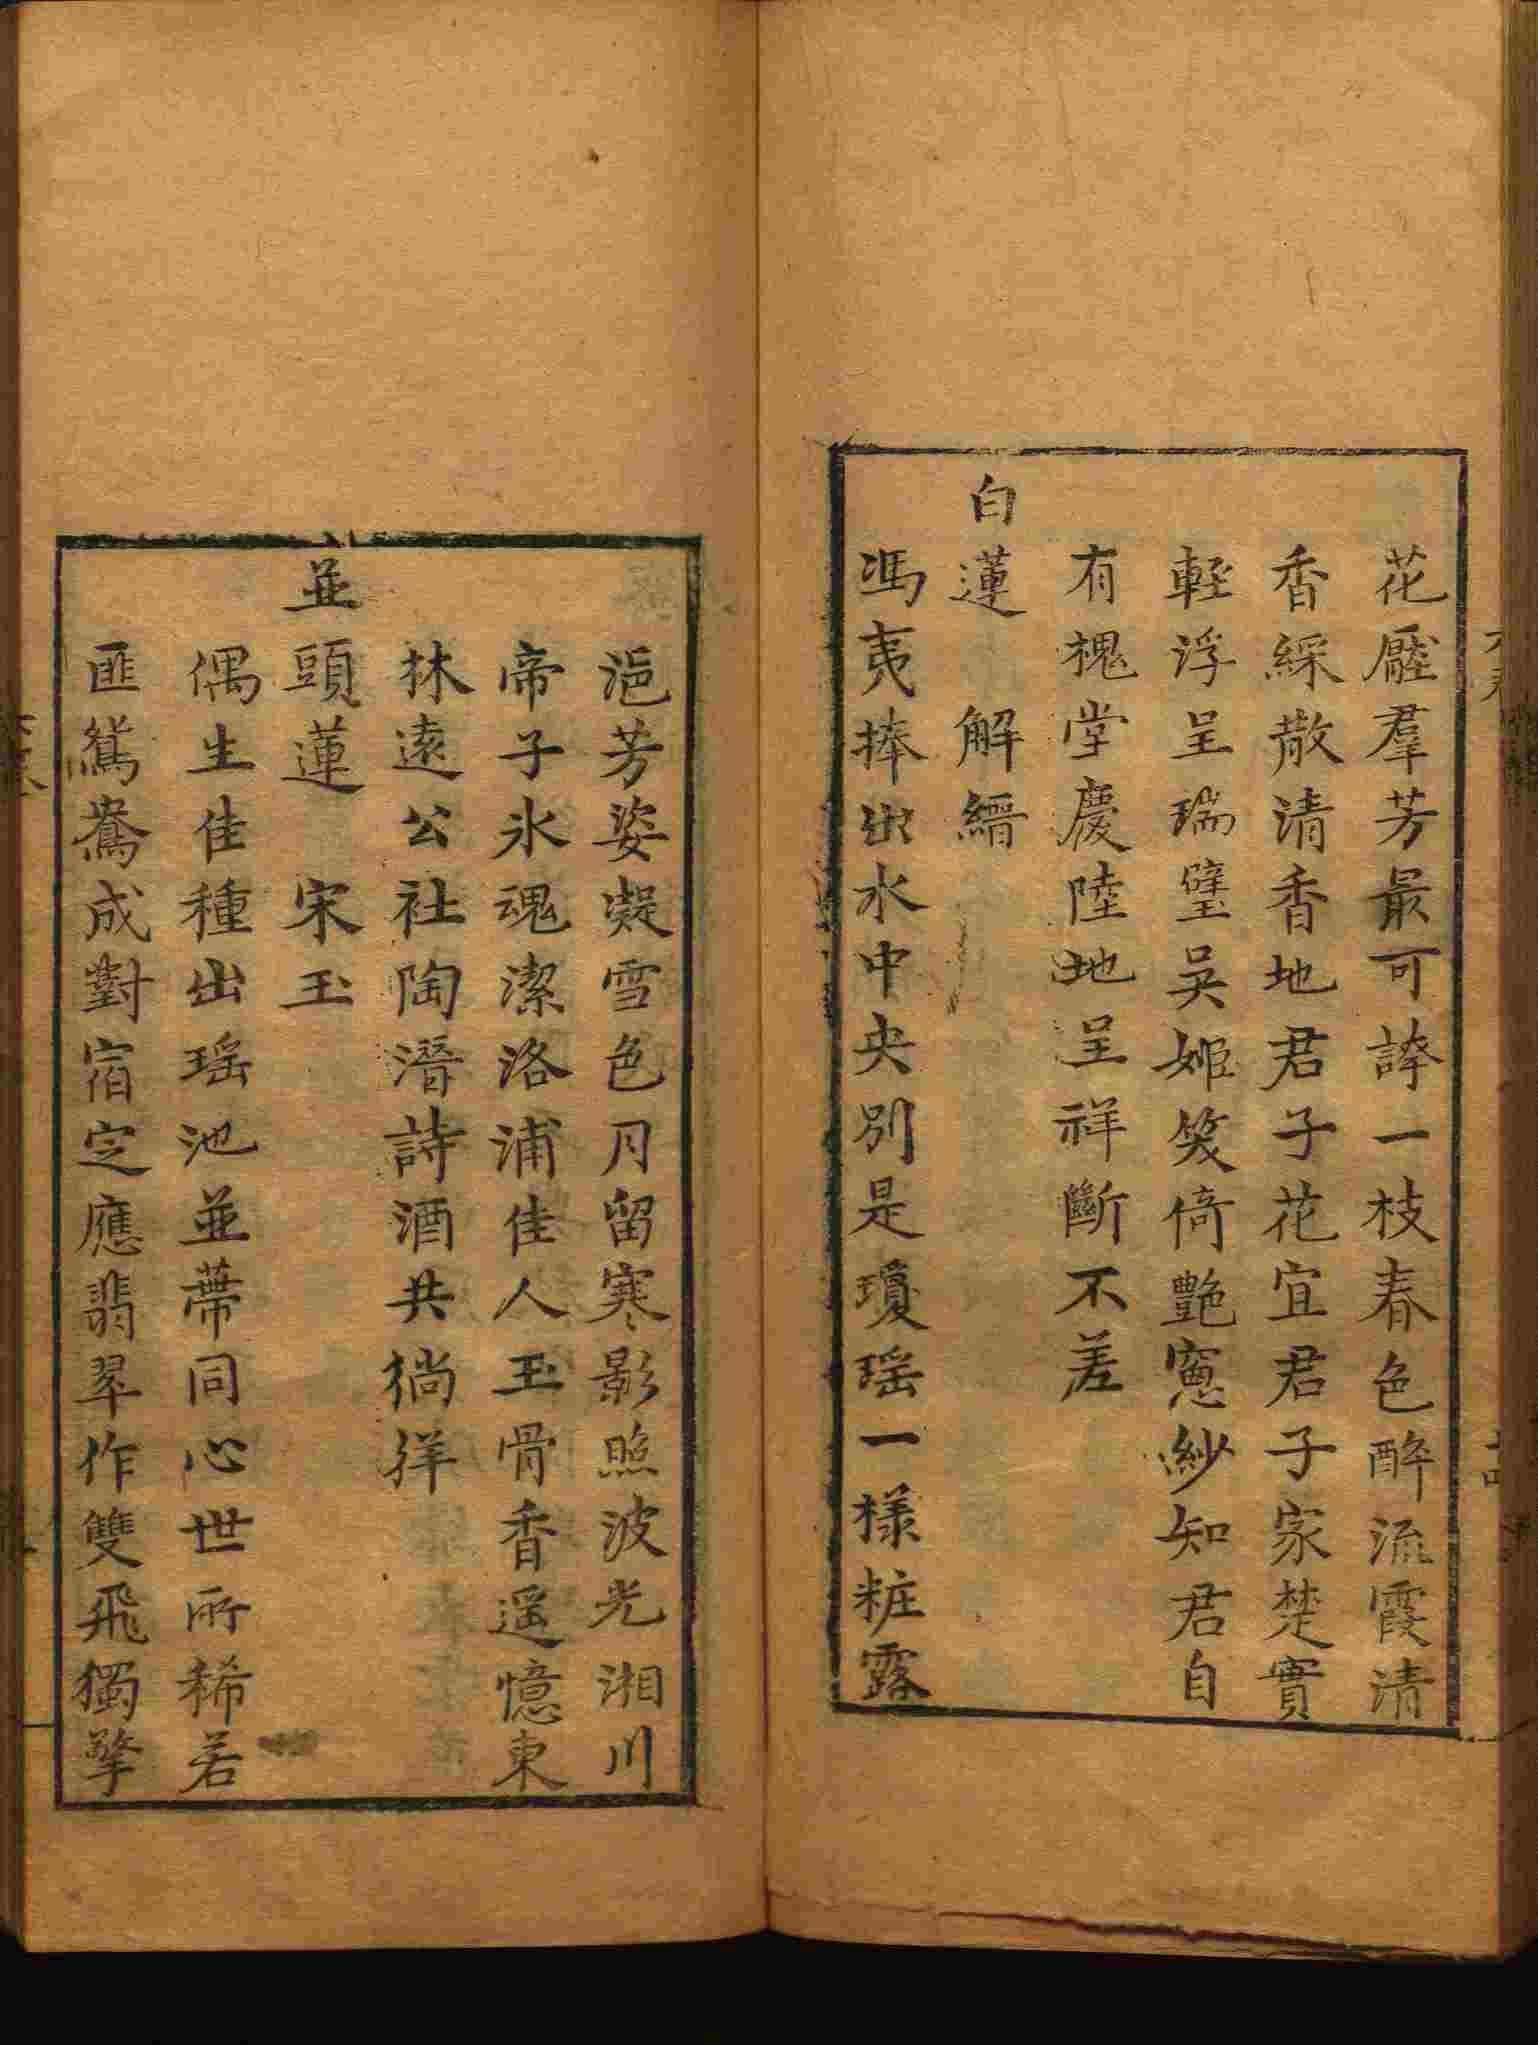 花壓羣芳最可誇一枝春色醉流霞清
香綵散清香地君子花宜君子家楚實
輕浮呈瑞璧吳姬笑倚艷窻紗知君自
有槐堂慶陸地呈祥斷不差
白蓮　解縉
馮夷捧出水中央別是瓊瑤一樣粧露
浥芳姿凝雪色月留寒影照波光湘川
帝子氷魂潔洛浦佳人玉骨香遥憶東
林遠公社陶潛詩酒共徜徉
並頭蓮　宋玉
偶生佳種出瑶池並蒂同心世所稀若
匪鴛鴦成對宿定應翡翠作雙飛獨擎